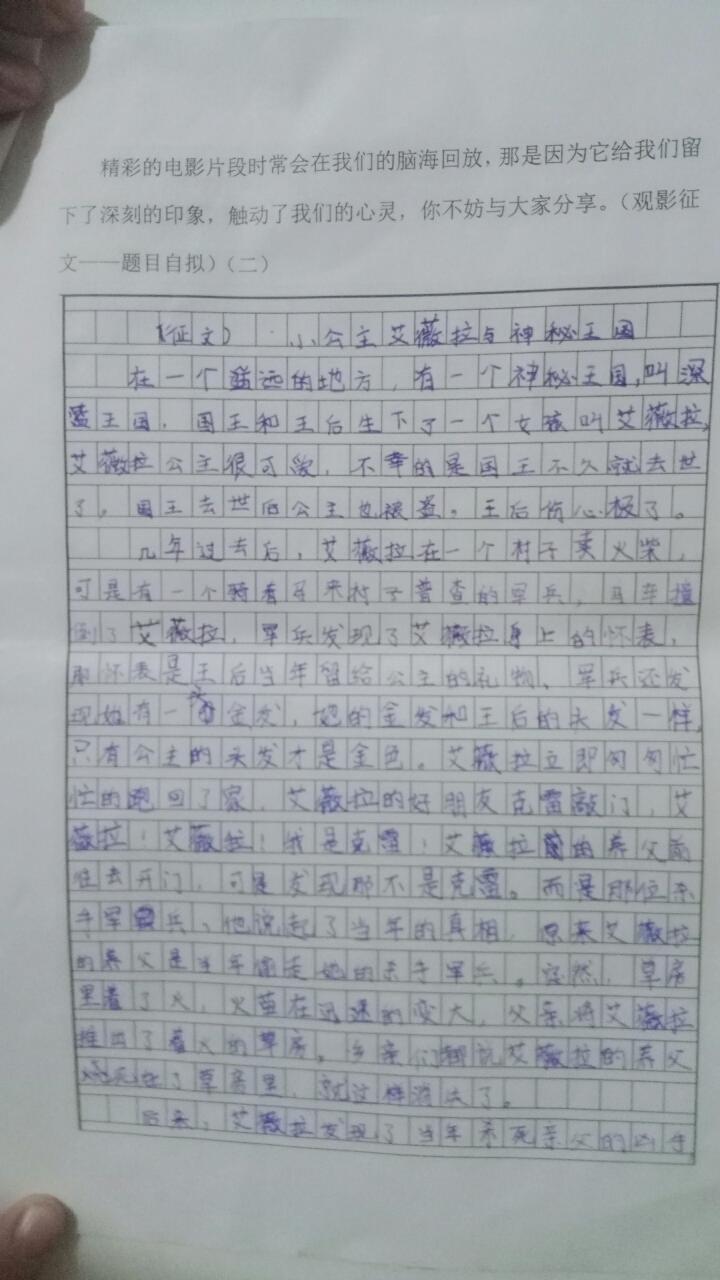 精彩的电影片段时常会在我们的脑海回放,那是因为它给我们留
下了深刻的印象,触动了我们的心灵,你不妨与大家分享。(观影征
文——题目自拟)(二)
(征文) 小公主艾薇拉与神秘王国
在一个遥远的地方,有一个神秘王国,叫深
蓝王国,国王和王后生下了一个女孩叫艾薇拉,
艾薇拉公主很可爱,不幸的是国王不久就去世
了。国王去世后公主也被盗。王后伤心极了。
几年过去后,艾薇拉在一个村子卖火柴,
可是有一个骑着马来村子普查的军兵,马车撞
倒了艾薇拉,军兵发现了艾薇拉身上的怀表,
那怀表是王后当年留给公主的礼物、军兵还发
现她有一头金发,她的金发和王后的头发一样,
只有公主的头发才是金色。艾薇拉立即匆匆忙
忙的跑回了家,艾薇拉的好朋友克雷敲门,艾
薇拉!艾薇拉!我是克雷!艾薇拉的养父前
往去开门,可是发现那不是克雷。而是那位杀
手军兵、他说起了当年的真相,原来艾薇拉
的养父是当年偷走她的杀手军兵。突然,草房
里着了火,火苗在迅速的变大,父亲将艾薇拉
推出了着火的草房。乡亲们都说艾薇拉的养父
死在了草房里,就这样消失了。
后来,艾薇拉发现了当年杀死亲父的凶手